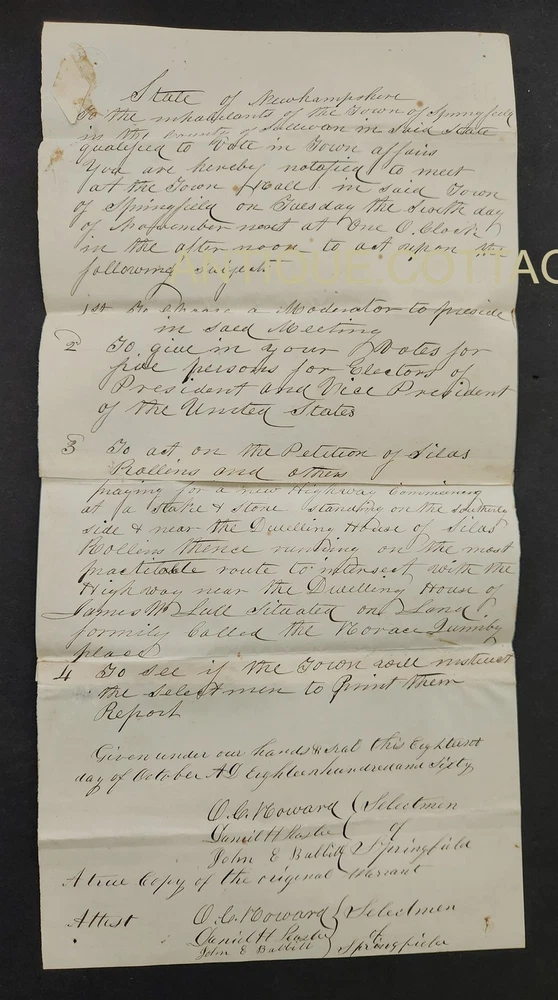 State of Newhampshire
To the inhabitants of the Town of Springfield
in the County of Sullivan in said State
qualified to Vote in Town affairs
You are hereby notified to meet
at the Town Hall in said Town
of Springfield on Tuesday the Sixth day
of November next at One O. Clock
in the after noon to act upon the
following Subject
ANTIQUE.COTTAG
1st To Choose a Moderator to preside
in said Meeting
2 To give in your Votes for
five persons for Electors of
President and Vice President
of the United States
3 To act on the Petition of Silas
Rollins and others
praying for a new Highway Commencing
at a Stake & Stone standing on the southerly
side & near the Dwelling House of Silas
Rollins thence running on the most
practitable route to intersect with the
Highway near the Dwelling House of
James M Lull Situated on Land
formily Called the Horace Quimby
place
4 To see if the Town will instruct
the selectmen to Print their
Report
Given under our hands & seal this Eighteenth
day of October AD Eighteen hundred and Sixty
O. C. Howard Selectmen
Daniel H of
John E Babbitt Springfield
A true Copy of the original Warrant
Attest O. C. Howard Selectmen
Daniel H of
John E Babbitt Springfield